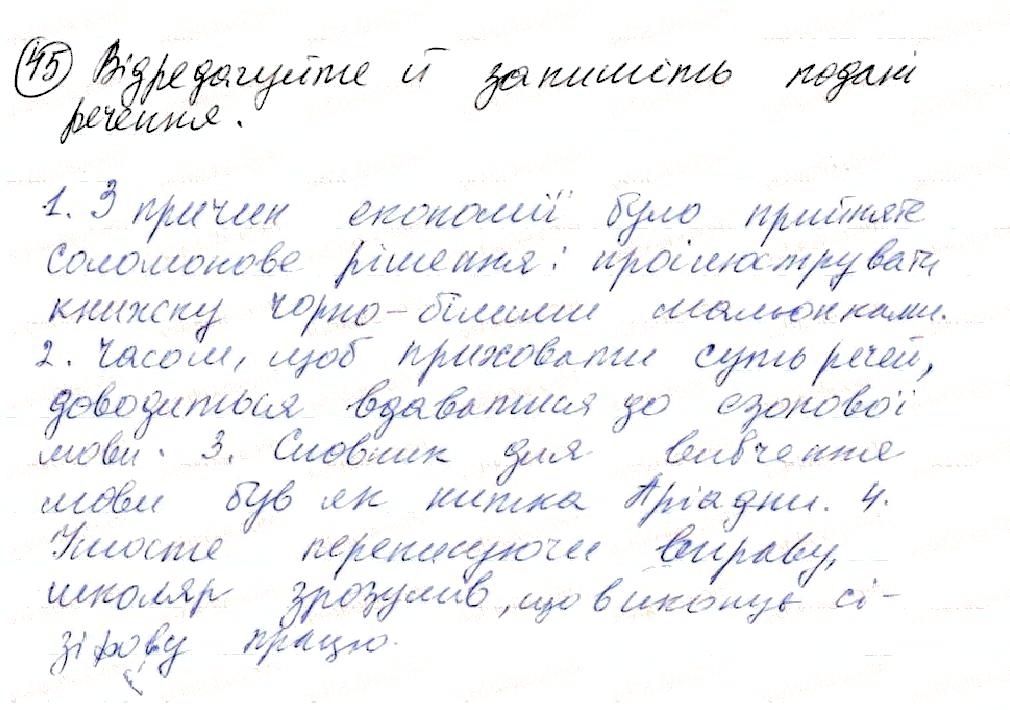 45 Відредагуйте й запишіть подані
речення.
1. З причин економії було прийняте
соломонове рішення: проілюструвати
книжку чорно-білими мальонками.
2. Часом, щоб приховати суть речей,
доводиться вдаватися до езопової
мови. 3. Словник для вивчення
мови був як нитка Аріадни. 4.
Ушосте переписуючи вправу,
школяр зрозумів, що виконує сі-
зіфову працю.